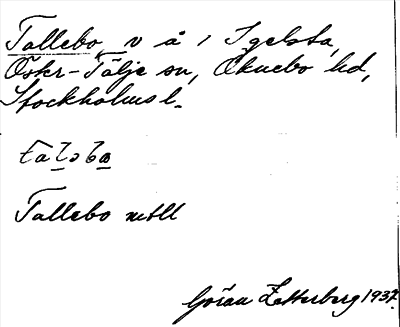 Tallebo, v å i Igelsta,
Öster-Tälje sn, Öknebo hd,
Stockholms l.
Tallebo
Göran Zetterberg 1937.